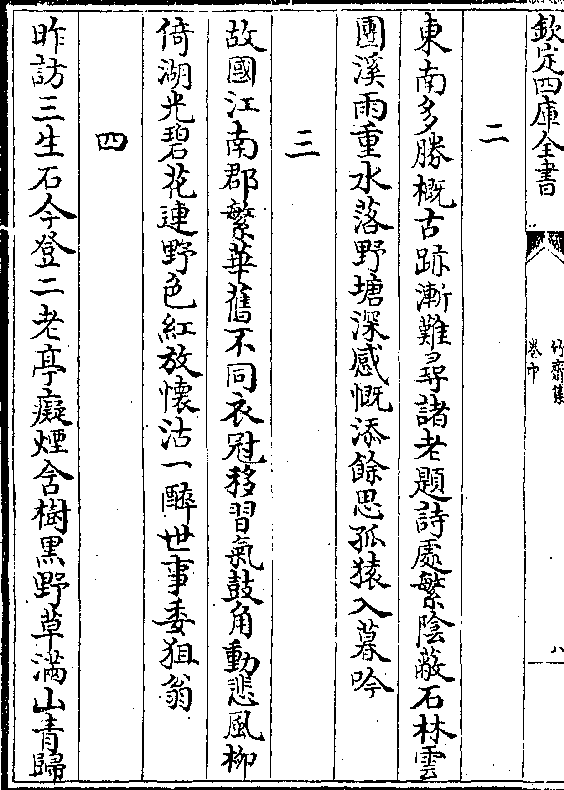 欽定四庫全書
竹齋集
卷中
八
二
東南多勝概古跡漸難尋諸老題詩處繁陰蔽石林雲
團溪雨重水落野塘深感慨添餘思孤猿入暮吟
三
故國江南郡繁華舊不同衣冠移習氣鼓角動悲風柳
倚湖光碧花連野色紅放懷沽一醉世事委狙翁
四
昨訪三生石今登二老亭癡煙含樹黑野草滿山青歸